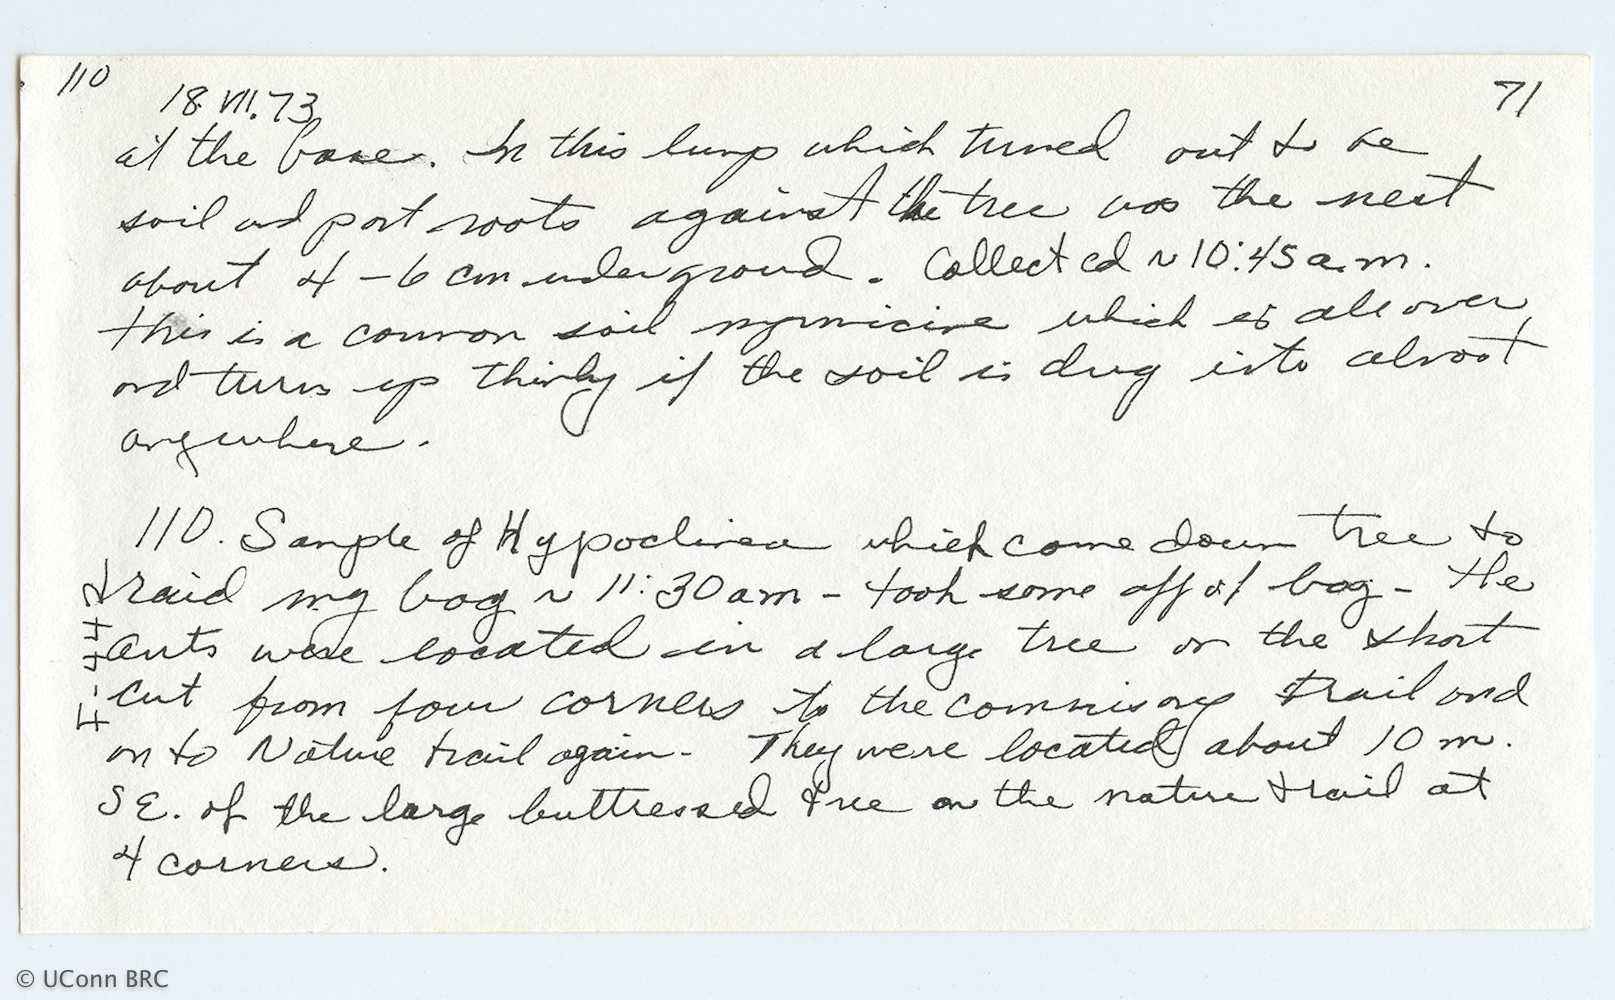 110
71
18 VII.73
at the base. In this lump which turned out to be
soil and part roots against the tree was the nest
about 4-6 cm underground. Collected ~ 10:45 a.m.
this is a common soil myrmicine which is all over
and turns up thinly if the soil is dug into almost
anywhere.
110. Sample of Hypoclinea which come down tree to
raid my bag ~ 11:30 am - took some off of bag - the
ants were located in a large tree on the short
cut from four corners to the commisary trail and
on to Nature trail again - They were located about 10 m.
SE. of the large buttressed tree on the nature trail at
4 corners.
© UConn BRC